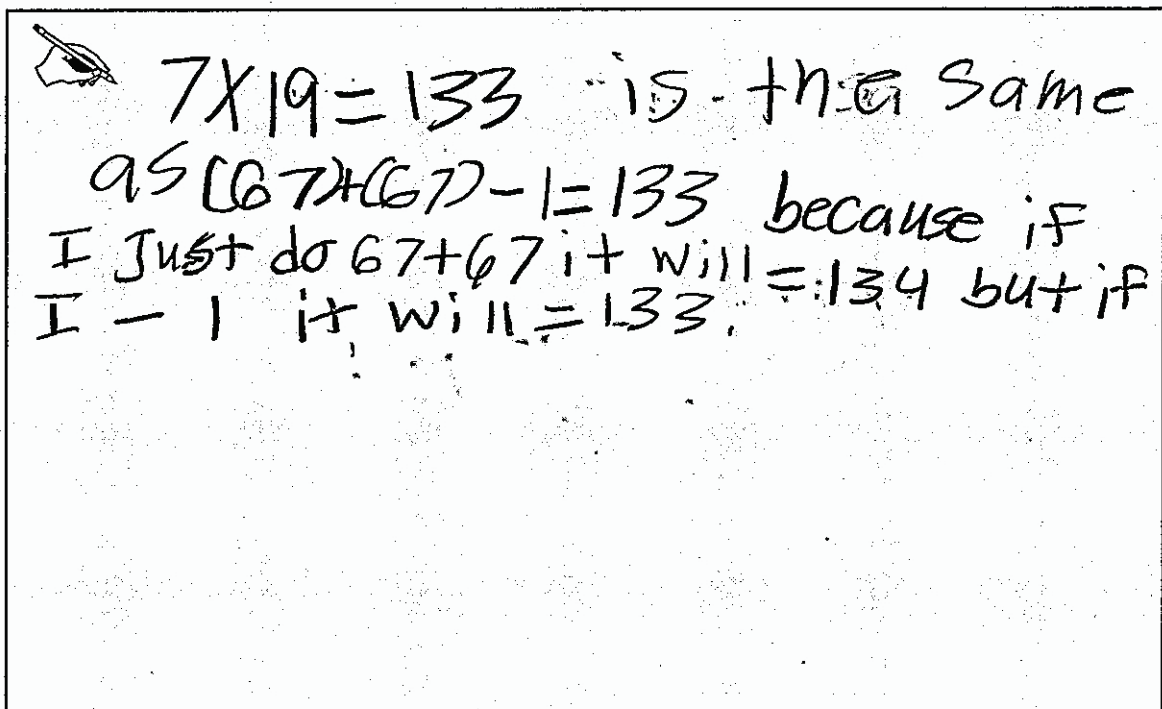 7X19=133 is the same
as (67)+(67)-1=133 because if
I Just do 67+67 it will =134 but if
I - 1 it will =133.